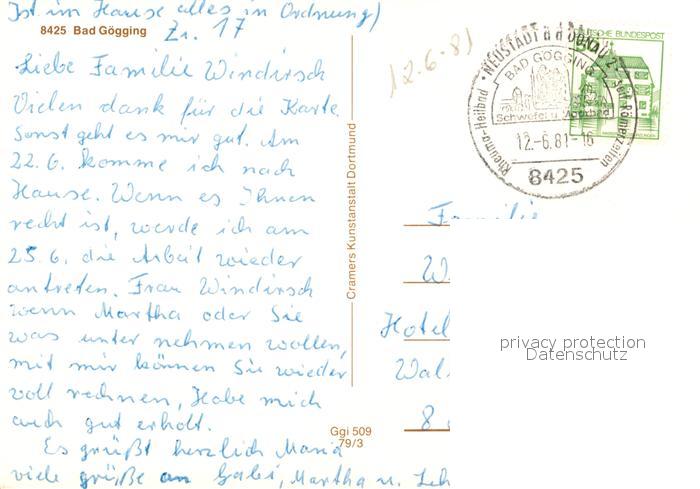 Ist im Hause alles in Ordnung)
8425 Bad Gögging
Zr. 17
Liebe Familie Windirsch
Vielen dank für die Karte
Sonst geht es mir gut. Am
22.6. komme ich nach
Hause. Wenn es Ihnen
recht ist, werde ich am
25.6. die Arbeit wieder
antreten. Frau Windirsch
wenn Martha oder Sie
was unter nehmen wollen,
mit mir können Sie wieder
voll rechnen, Habe mich
auch gut erholt.
Es grüßt herzlich Maria
viele grüße an Gabi, Martha u.
Cramers Kunstanstalt Dortmund
Ggi 509
79/3
12-6-81
DEUTSCHE BUNDESPOST
NEUSTADT a d DONAU 2
seit Römerzeiten
Rheuma-Heilbad
BAD GÖGGING
Schwefel u. Moorbad
12.-6.81-16
8425
Familie
W
Hotel
Wal
8
privacy protection
Datenschutz